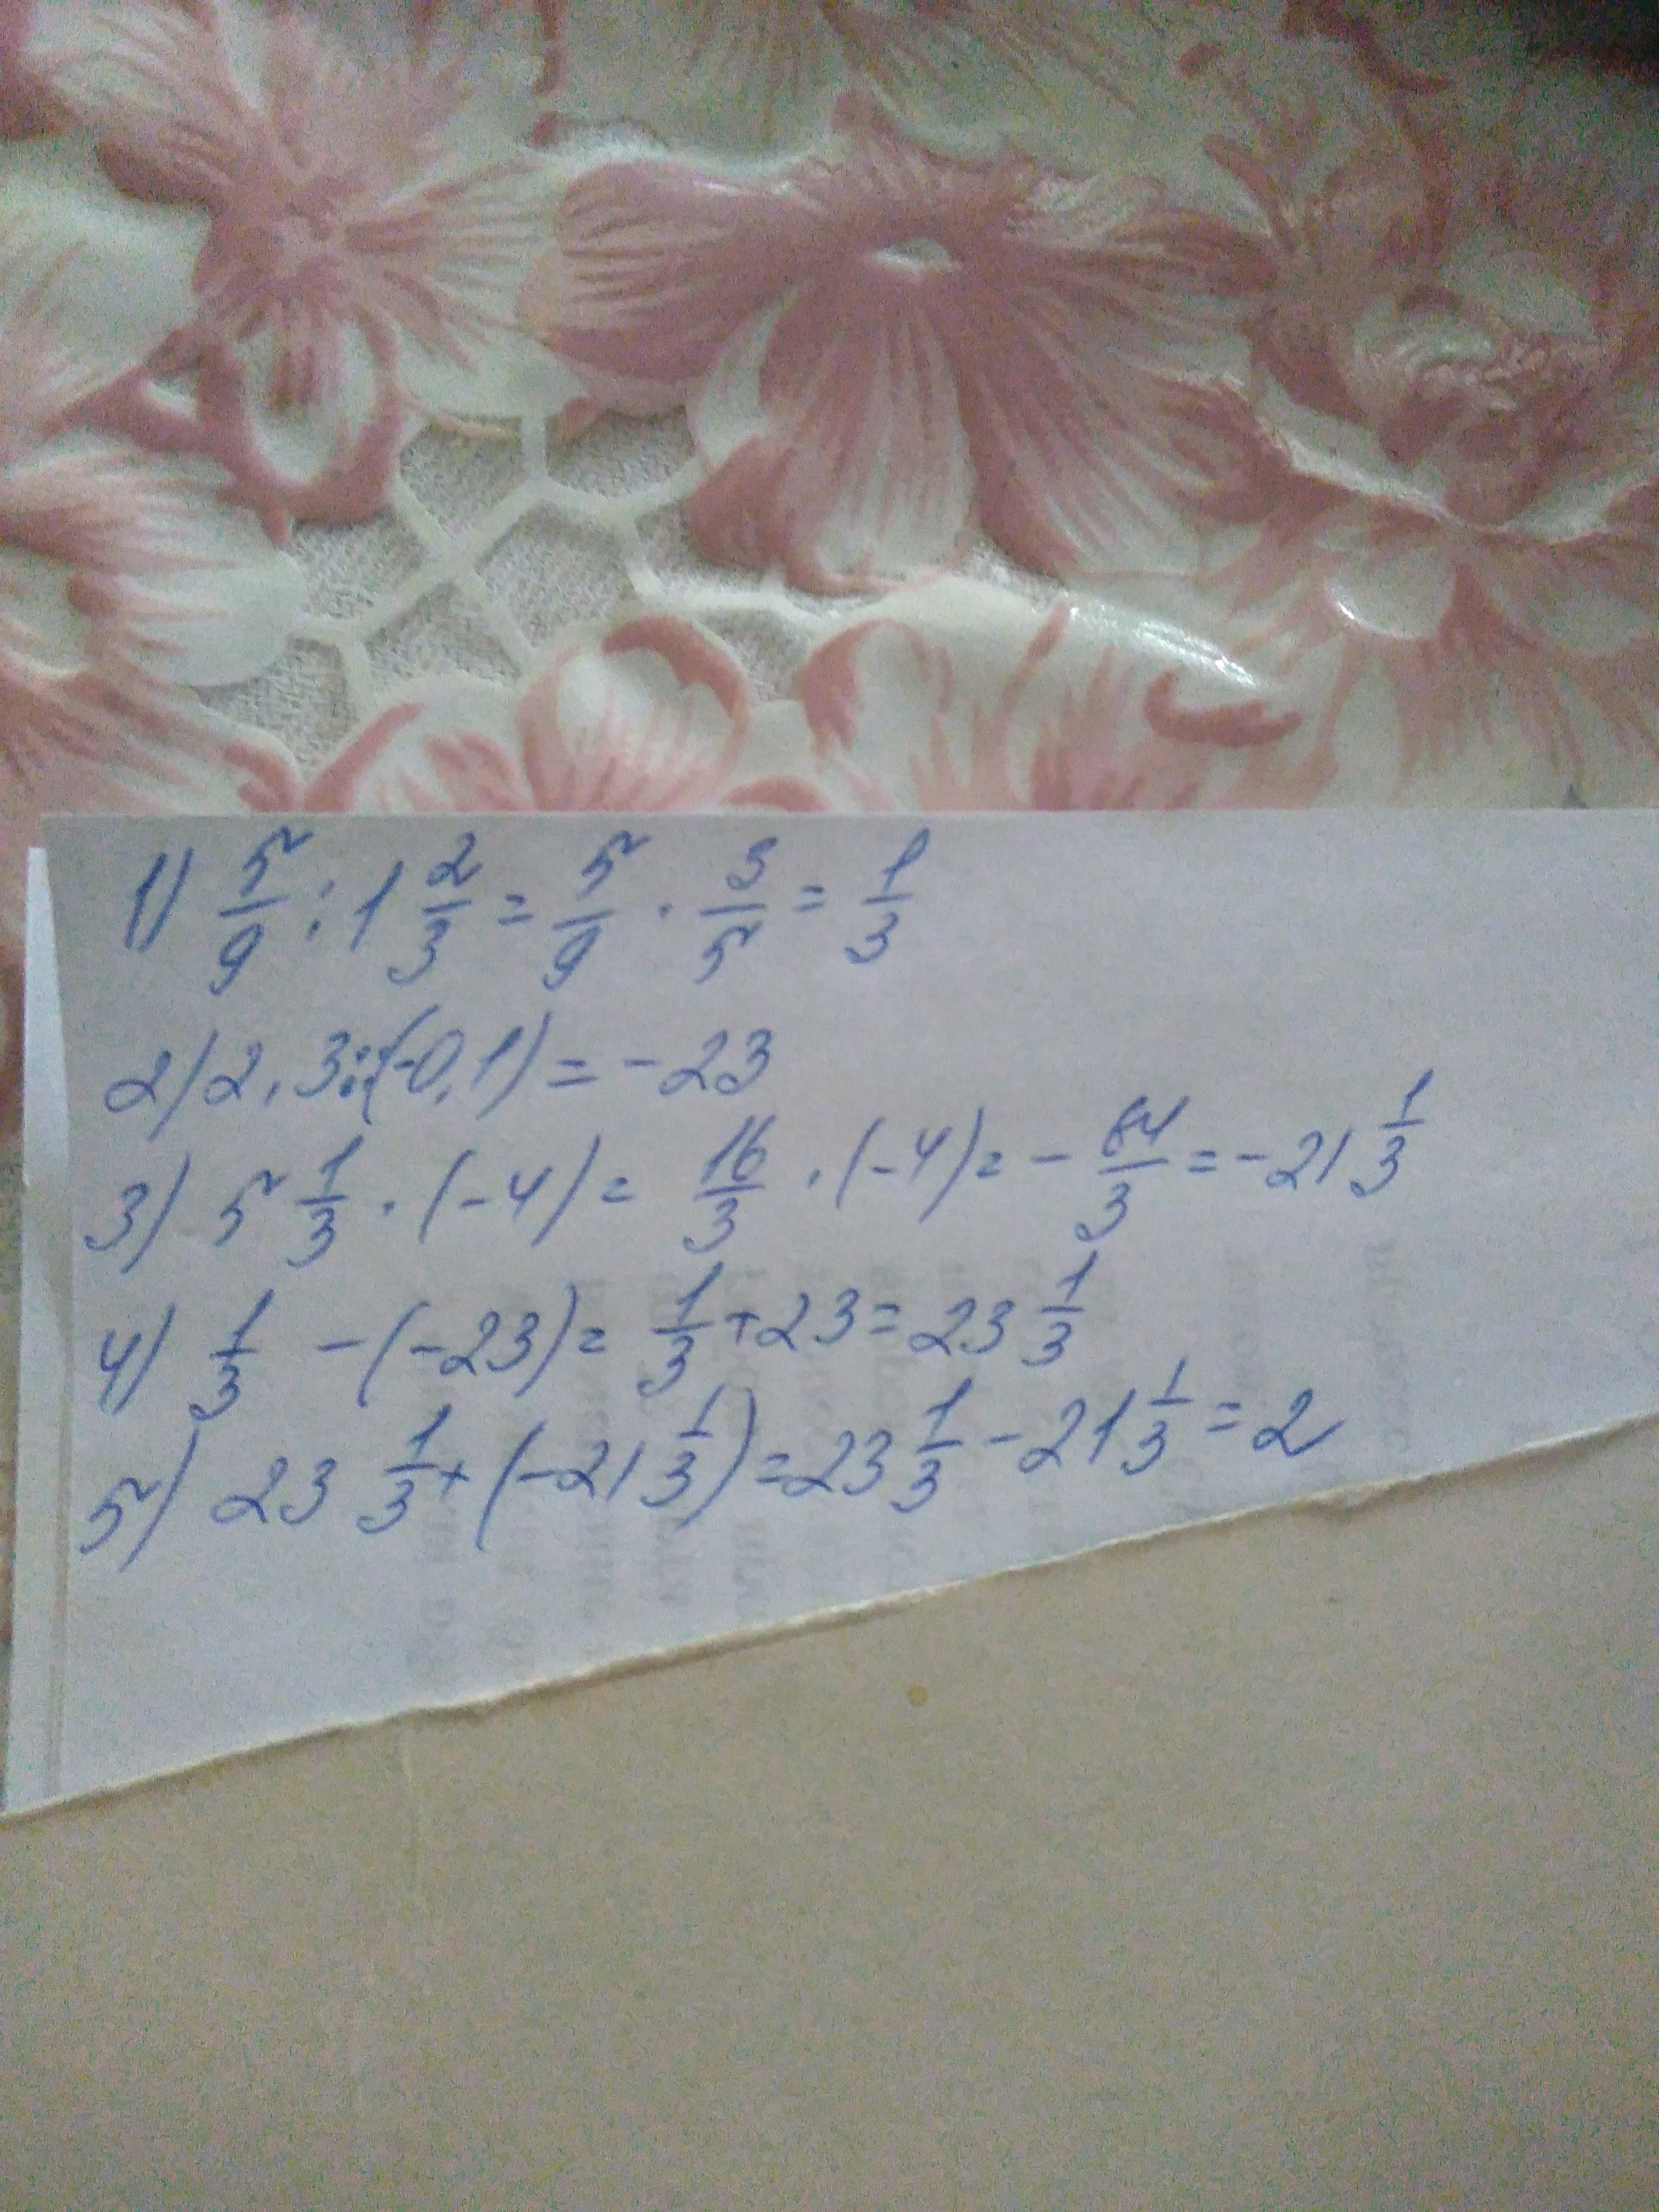 1) 5/9 : 1 2/3 = 5/9 · 3/5 = 1/3
2) 2,3:(-0,1) = -23
3) 5 1/3 · (-4) = 16/3 · (-4) = - 64/3 = -21 1/3
4) 1/3 - (-23) = 1/3 + 23 = 23 1/3
5) 23 1/3 + (-21 1/3) = 23 1/3 - 21 1/3 = 2